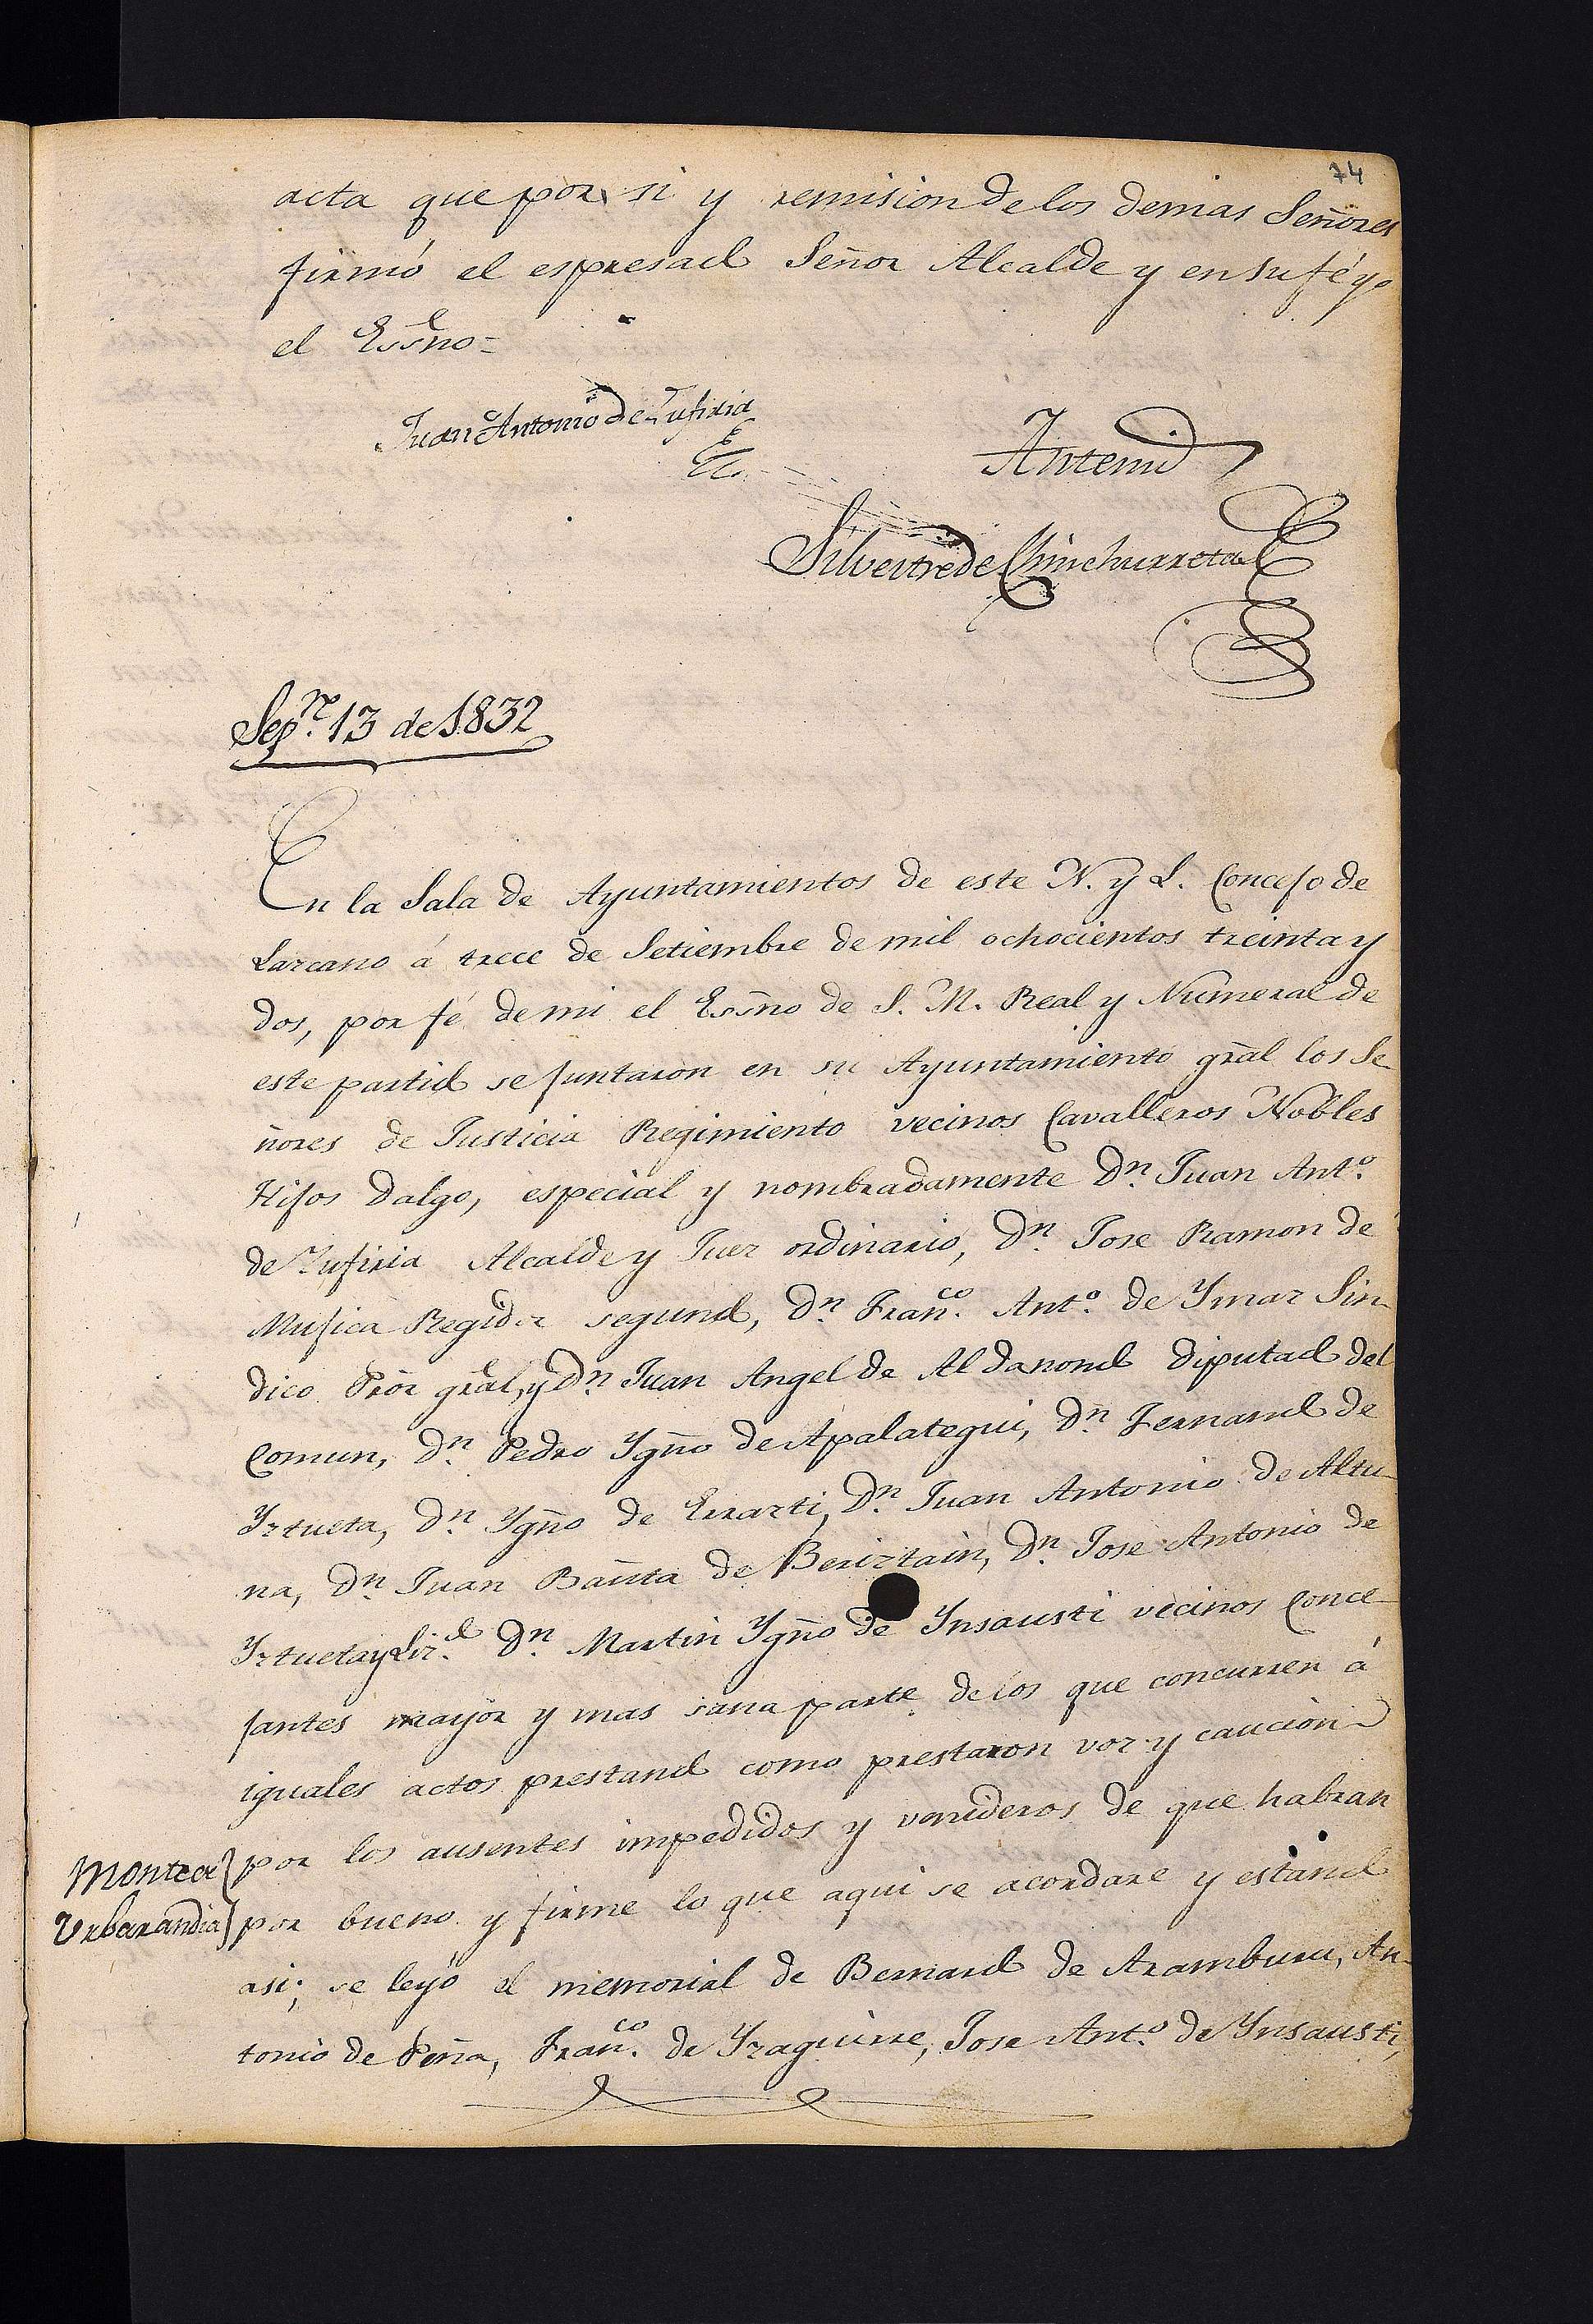 74
acta que por si y remision de los demas Señores
firmó el espresado Señor Alcalde y en su fé yo
el Essño=
Juan Antonio de Zufiria
Antemi
Silvestre de Chinchurreta
Sepre. 13 de 1832
En la Sala de Ayuntamientos de este N. y L. Concejo de
Lazcano á trece de Setiembre de mil ochocientos treinta y
dos, por fé de mi el Essño de S. M. Real y Numeral de
este partido se juntaron en su Ayuntamiento gr̃al los Se
ñores de Justicia Regimiento vecinos Cavalleros Nobles
Hijos dalgo, especial y nombradamente Dn. Juan Anto.
de Zufiria Alcalde y Juez ordinario, Dn. Jose Ramon de
Mujica Regidor segundo, Dn. Franco. Anto. de Ymaz Sin
dico Pr̃or gr̃al, y Dn. Juan Angel de Aldanondo Diputado del
Comun, Dn. Pedro Ygño de Apalategui, Dn. Fernando de
Yztueta, Dn. Ygño de Errarti, Dn. Juan Antonio de Altu-
na, Dn. Juan Bauta de Beriztain, Dn. Jose Antonio de
Yztueta y Lizdo. Dn. Martin Ygño de Ynsausti vecinos Conce
jantes mayor y mas sana parte de los que concurren á
iguales actos prestando como prestaron voz y caucion
por los ausentes impedidos y venideros de que habran
Montea
Urbarandia
por bueno y firme lo que aqui se acordare y estando
asi; se leyó el memorial de Bernardo de Aramburu, An-
tonio de Peña, Franco. de Yzaguirre, Jose Anto. de Ynsausti,